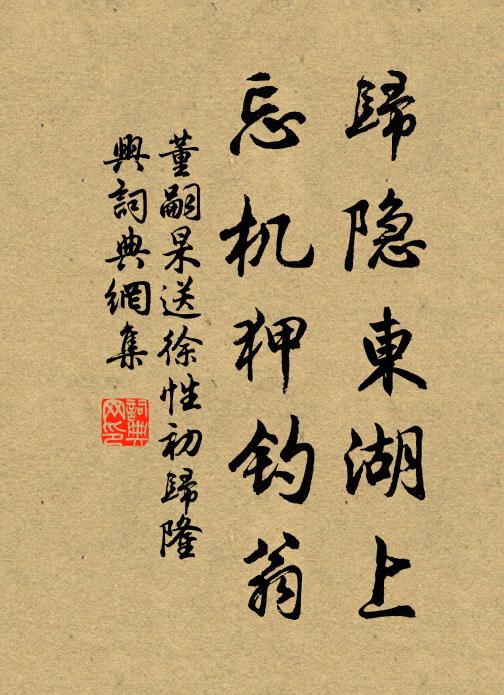 歸隐東湖上
忘机狎钓翁
董嗣杲送徐性初歸隆
興詞典網集
詞典
网印